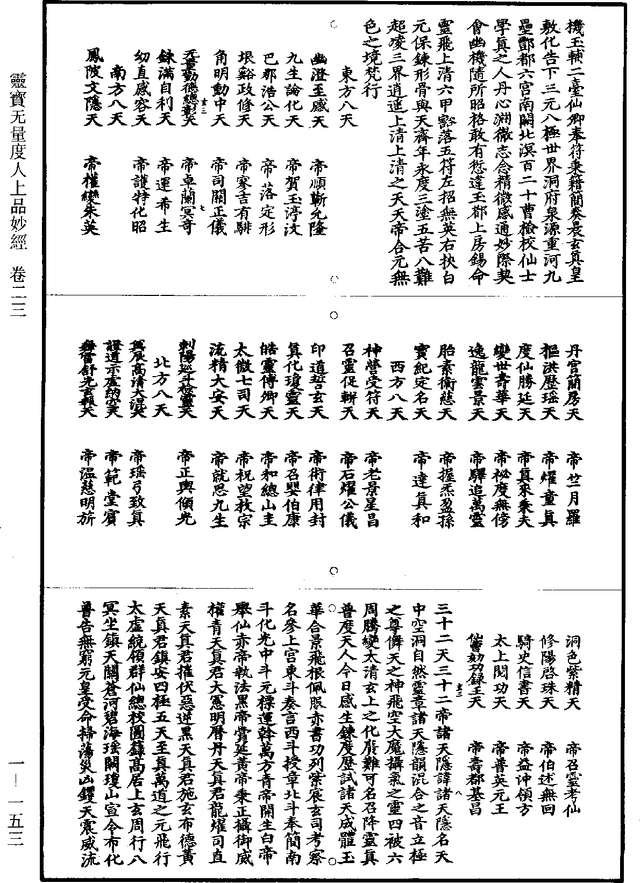 靈寶无量度人上品妙經　卷二三
一—一五三
機玉輔二臺仙卿奉符秉籍簡奏晨玄真皇
敷化告下三元八極世界洞府泉源重河九
壘酆都六宮南閫北溟百二十曹檢校仙士
學真之人丹心淵微志念精微感通妙際契
會幽機隨所昭格敢有愆違玉都上房錫命
靈飛上清六甲豁落五符左招無英右扶白
元保錬形骨與天齊年永度三塗五苦八難
超凌三界逍遙上清上清之天天帝合元無
色之境梵行
東方八天
幽澄至感天　帝順斬允隆
九生論化天　帝賀玉渟汶
巴都浩公天　帝落定形
垠谿政修天　帝寥言有騑
角明動中天　帝司關正儀
帝卓闌冥奇
錬滿自利天　帝運希生
幼直感容天　帝護特化昭
南方八天
鳳陂文隱天　帝權變朱英
丹宮簡房天　帝竺月羅
樞洪歷瑶天　帝耀童真
度仙勝延天　帝真來乘天
變世奇華天　帝祕度無傍
逸龍雲景天　帝驛追萬靈
胎素衡慈天　帝握炁盈孫
寶紀定名天　帝達真和
西方八天
神營受符天　帝老景星昌
召靈促輧天　帝石燿公儀
印道誓玄天　帝術律用封
真化瓊靈天　帝召嬰伯康
皓靈傅卿天　帝和總山圭
太微七司天　帝祝望救宗
流精大安天　帝就思九生
帝正輿傾光
北方八天
帝瑶弓致真
帝範堂賓
帝溫慈明旂
洞色紫精天　帝召靈考仙
修陽啓珠天　帝伯述無回
騎史信書天　帝益仲領方
太上閱功天　帝普英元王
帝壽郡基昌
三十二天三十二帝諸天隱諱諸天隱名天
中空洞自然靈章諸天隱韻混合之音立極
之尊儕天之神飛空大魔攝氣之靈四被六
周騰變太清玄上之化質難可名召降靈真
普度天人今日感生錬度歷試諸天成羅玉
華合景飛根佩服赤書功列紫晨玄司考察
名參上宮東斗奏言西斗授章北斗奉簡南
斗化光中斗元標運幹萬方青帝開生白帝
舉仙赤帝執法黑帝賞延黃帝秉正攝御威
權青天真君大憲明曆丹天真君龍燿司直
素天真君摧伏惡逆黑天真君施玄布德黃
天真君鎮安四極五天至真萬道之元飛行
太虛統領群仙總校圖籙高居上玄周行八
冥坐鎮天關蒼河碧海瑶闕瓊山宣令布化
普告無窮元皇受命掃蕩災凶钁天震威流